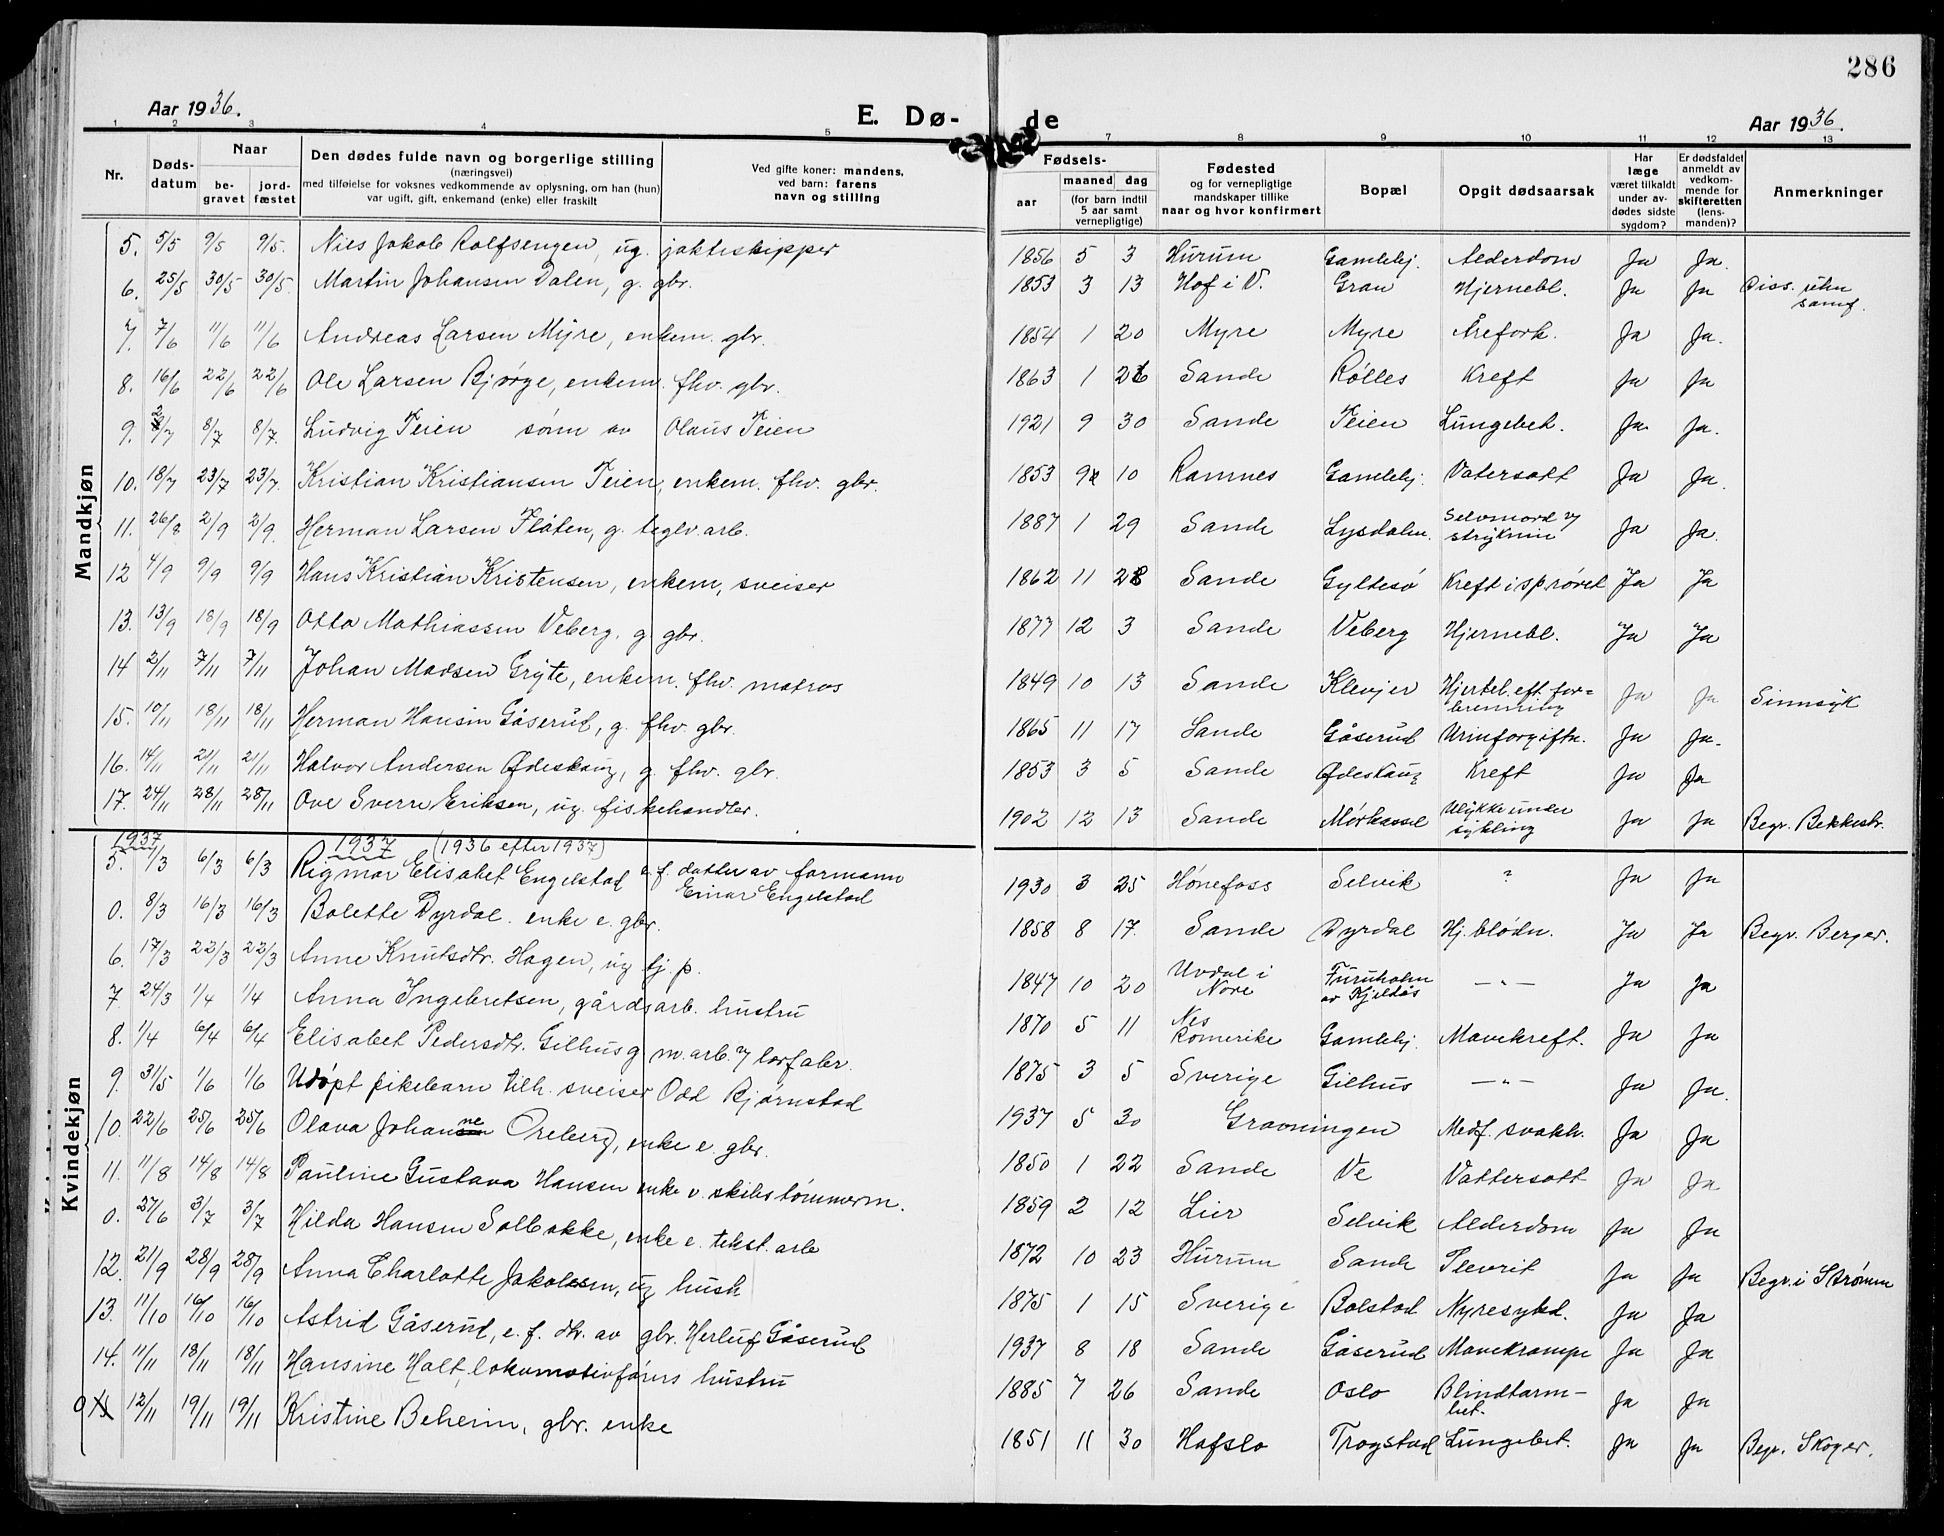 286
Aar 1936.
E. Dø-
de
Aar 1936.
1 2 3 4 5 7 8 9 10 11 12 13
Nr.
Døds-
datum
Naar
be-
gravet
jord-
fæstet
Den dødes fulde navn og borgerlige stilling
(næringsvei)
med tilføielse for voksnes vedkommende av oplysning, om han (hun)
var ugift, gift, enkemand (enke) eller fraskilt
Ved gifte koner: mandens,
ved barn: farens
navn og stilling
Fødsels-
aar
maaned dag
(for barn indtil
5 aar samt
vernepligtige)
Fødested
og for vernepligtige
mandskaper tillike
naar og hvor konfirmert
Bopæl
Opgit dødsaarsak
Har
læge
været tilkaldt
under av-
dødes sidste
sygdom?
Er dødsfaldet
anmeldt av
vedkom-
mende for
skifteretten
(lens-
manden)?
Anmerkninger
Mandkjøn
5. 5/5 9/5 9/5. Nils Jakob Rolfsengen, ug. jaktskipper 1856 5 3 Hurum Gamlebj. Alderdom Ja Ja.
6. 25/5 30/5 30/5. Martin Johansen Dalen, g. gbr. 1853 3 13 Hof i V. Gran Hjernebl. Ja Ja Diss. uten
samf.
7. 7/6 11/6 11/6 Andreas Larsen Myre, enkem. gbr. 1854 1 20 Myre Myre Årefork. Ja Ja.
8. 16/6 22/6 22/6 Ole Larsen Bjørge, enkem. fhv. gbr. 1863 1 26 Sande Rølles Kreft Ja Ja
9. 2/7 8/7 8/7. Ludvig Teien sønn av Olaus Teien 1921 9 30 Sande Teien Lungebet. Ja. Ja.
10. 18/7 23/7 23/7. Kristian Kristiansen Teien, enkem. fhv. gbr. 1853 9 10 Ramnes Gamlebj. Vatersott Ja Ja.
11. 26/8 2/9 2/9. Herman Larsen Fløten, g. teglv.arb. 1887 1 29 Sande Lysdalen. Selvmord v/
stryknin Ja Ja.
12 4/9 9/9 9/9 Hans Kristian Kristensen, enkem, sveiser 1862 11 28 Sande Gyltesø Kreft i sprøret Ja Ja
13. 13/9 18/9 18/9 Otto Mathiassen Veberg, g. gbr. 1877 12 3 Sande Veberg Hjernebl. Ja Ja
14 2/11 7/11 7/11 Johan Madsen Gryte, enkem. fhv. matros 1849 10 13 Sande Klevjer Hjertel. eft. for=
brenning Ja Ja Sinnsyk
15. 10/11 18/11 18/11 Herman Hansen Gåserud, g. fhv. gbr. 1865 11 17 Sande Gåserud Urinforgiftn. Ja Ja.
16. 14/11 21/11 21/11 Halvor Andersen Ødeskaug, g. fhv. gbr. 1853 3 5 Sande Ødeskaug Kreft Ja Ja
17. 24/11 28/11 28/11 Ove Sverre Eriksen, ug. fiskehandler. 1902 12 13 Sande Mørkassel Ulykke under
sykling Ja Ja Begr. Bekkestr.
Kvindekjøn
1937 1937 (1936 efter 1937)
5. 1/3 6/3 6/3 Rigmor Elisabet Engelstad e.f. datter av formann
Einar Engelstad 1930 3 25 Hønefoss Selvik ? Ja Ja
0. 8/3 16/3 16/3 Bolette Dyrdal. enke e. gbr. 1858 8 17. Sande Dyrdal Hj. blødn. Ja Ja Begr. Berger.
6. 17/3 22/3 22/3 Anne Knutsdtr. Hagen, ug. tj. p. 1847 10 20 Uvdal i
Nore Furuholm
av Kjeldås — " — Ja Ja
7. 24/3 1/4 1/4 Anna Ingebretsen, gårdsarb. hustru 1870 5 11 Nes
Romerike Gamlebj. Mavekreft. Ja Ja
8. 1/4 6/4 6/4 Elisabet Pedersdtr. Gilhus g m. arb. v/ torfabr. 1875 3 5 Sverige Gilhus — " — Ja Ja.
9. 31/5 1/6 1/6 Udøpt pikebarn tilh. sveiser Odd Bjørnstad 1937 5 30 Gravningen Medf. svakh. Ja Ja
10. 22/6 25/6 25/6 Olava Johanne Oreberg, enke e. gbr. 1850 1 22 Sande Ve Vattersott Ja Ja
11. 11/8 14/8 14/8 Pauline Gustava Hansen enke e. skibstømmerm. 1859 2 12 Lier Selvik Alderdom Ja Ja
0. 27/6 3/7 3/7 Hilda Hansen Solbakke, enke e. tekst. arb 1872 10 23 Hurum Sande Plevrit Ja Ja Begr. i Strømm
12. 21/9 28/9 28/9 Anna Charlotte Jakobsen, ug hush 1875 1 15 Sverige Bolstad Nyresykd. Ja Ja
13. 11/10 16/10 16/10 Astrid Gåserud, e. f. dtr. av gbr. Herluf Gåserud 1937 8 18 Sande Gåserud Mavekrampe Ja Ja
14. 11/11 18/11 18/11 Hansine Holt, lokomotivførers hustru 1885 7 26 Sande Oslo Blindtarm-
bet. Ja Ja
0 12/11 19/11 19/11 Kristine Beheim, gbr. enke 1851 11 30 Hafslo Trogstad Lungebet. Ja Ja Begr. Skoger.